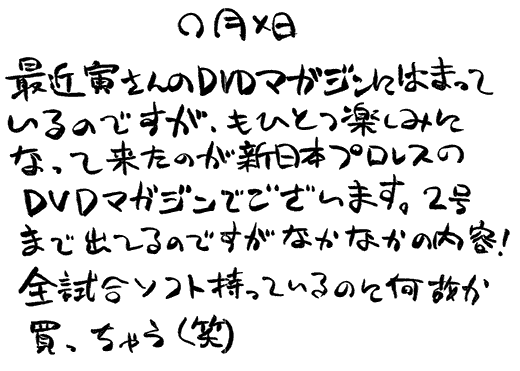 〇月×日
最近寅さんのDVDマガジンにはまって
いるのですが、もひとつ楽しみに
なって来たのが新日本プロレスの
DVDマガジンでございます。2号
まで出てるのですがなかなかの内容!
全試合ソフト持っているのに何故か
買っちゃう(笑)